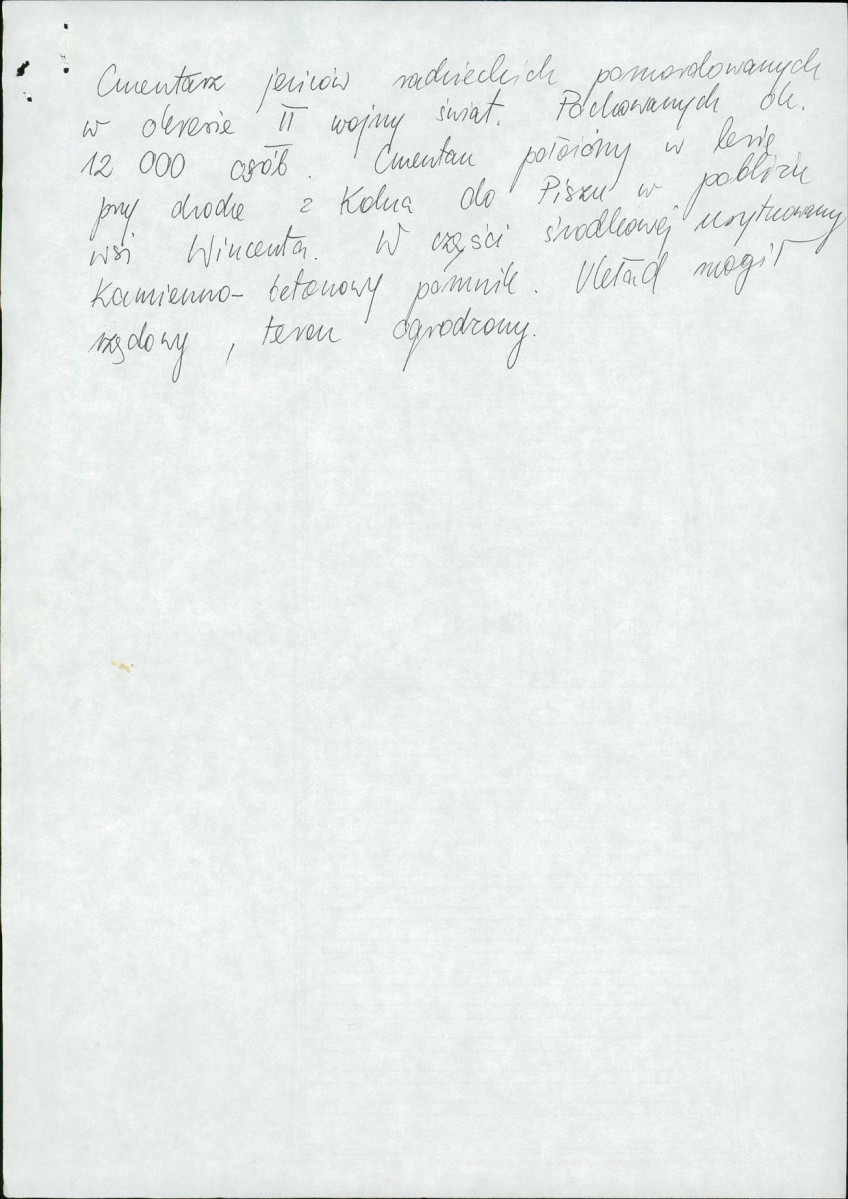 Cmentarz jeńców radzieckich pomordowanych
w okresie II wojny świat. Pochowanych ok.
12 000 osób. Cmentarz położony w lesie
przy drodze z Kolna do Pisza w pobliżu
wsi Wincenta. W części środkowej usytuowany
kamienno-betonowy pomnik. Układ mogił
rzędowy, teren ogrodzony.